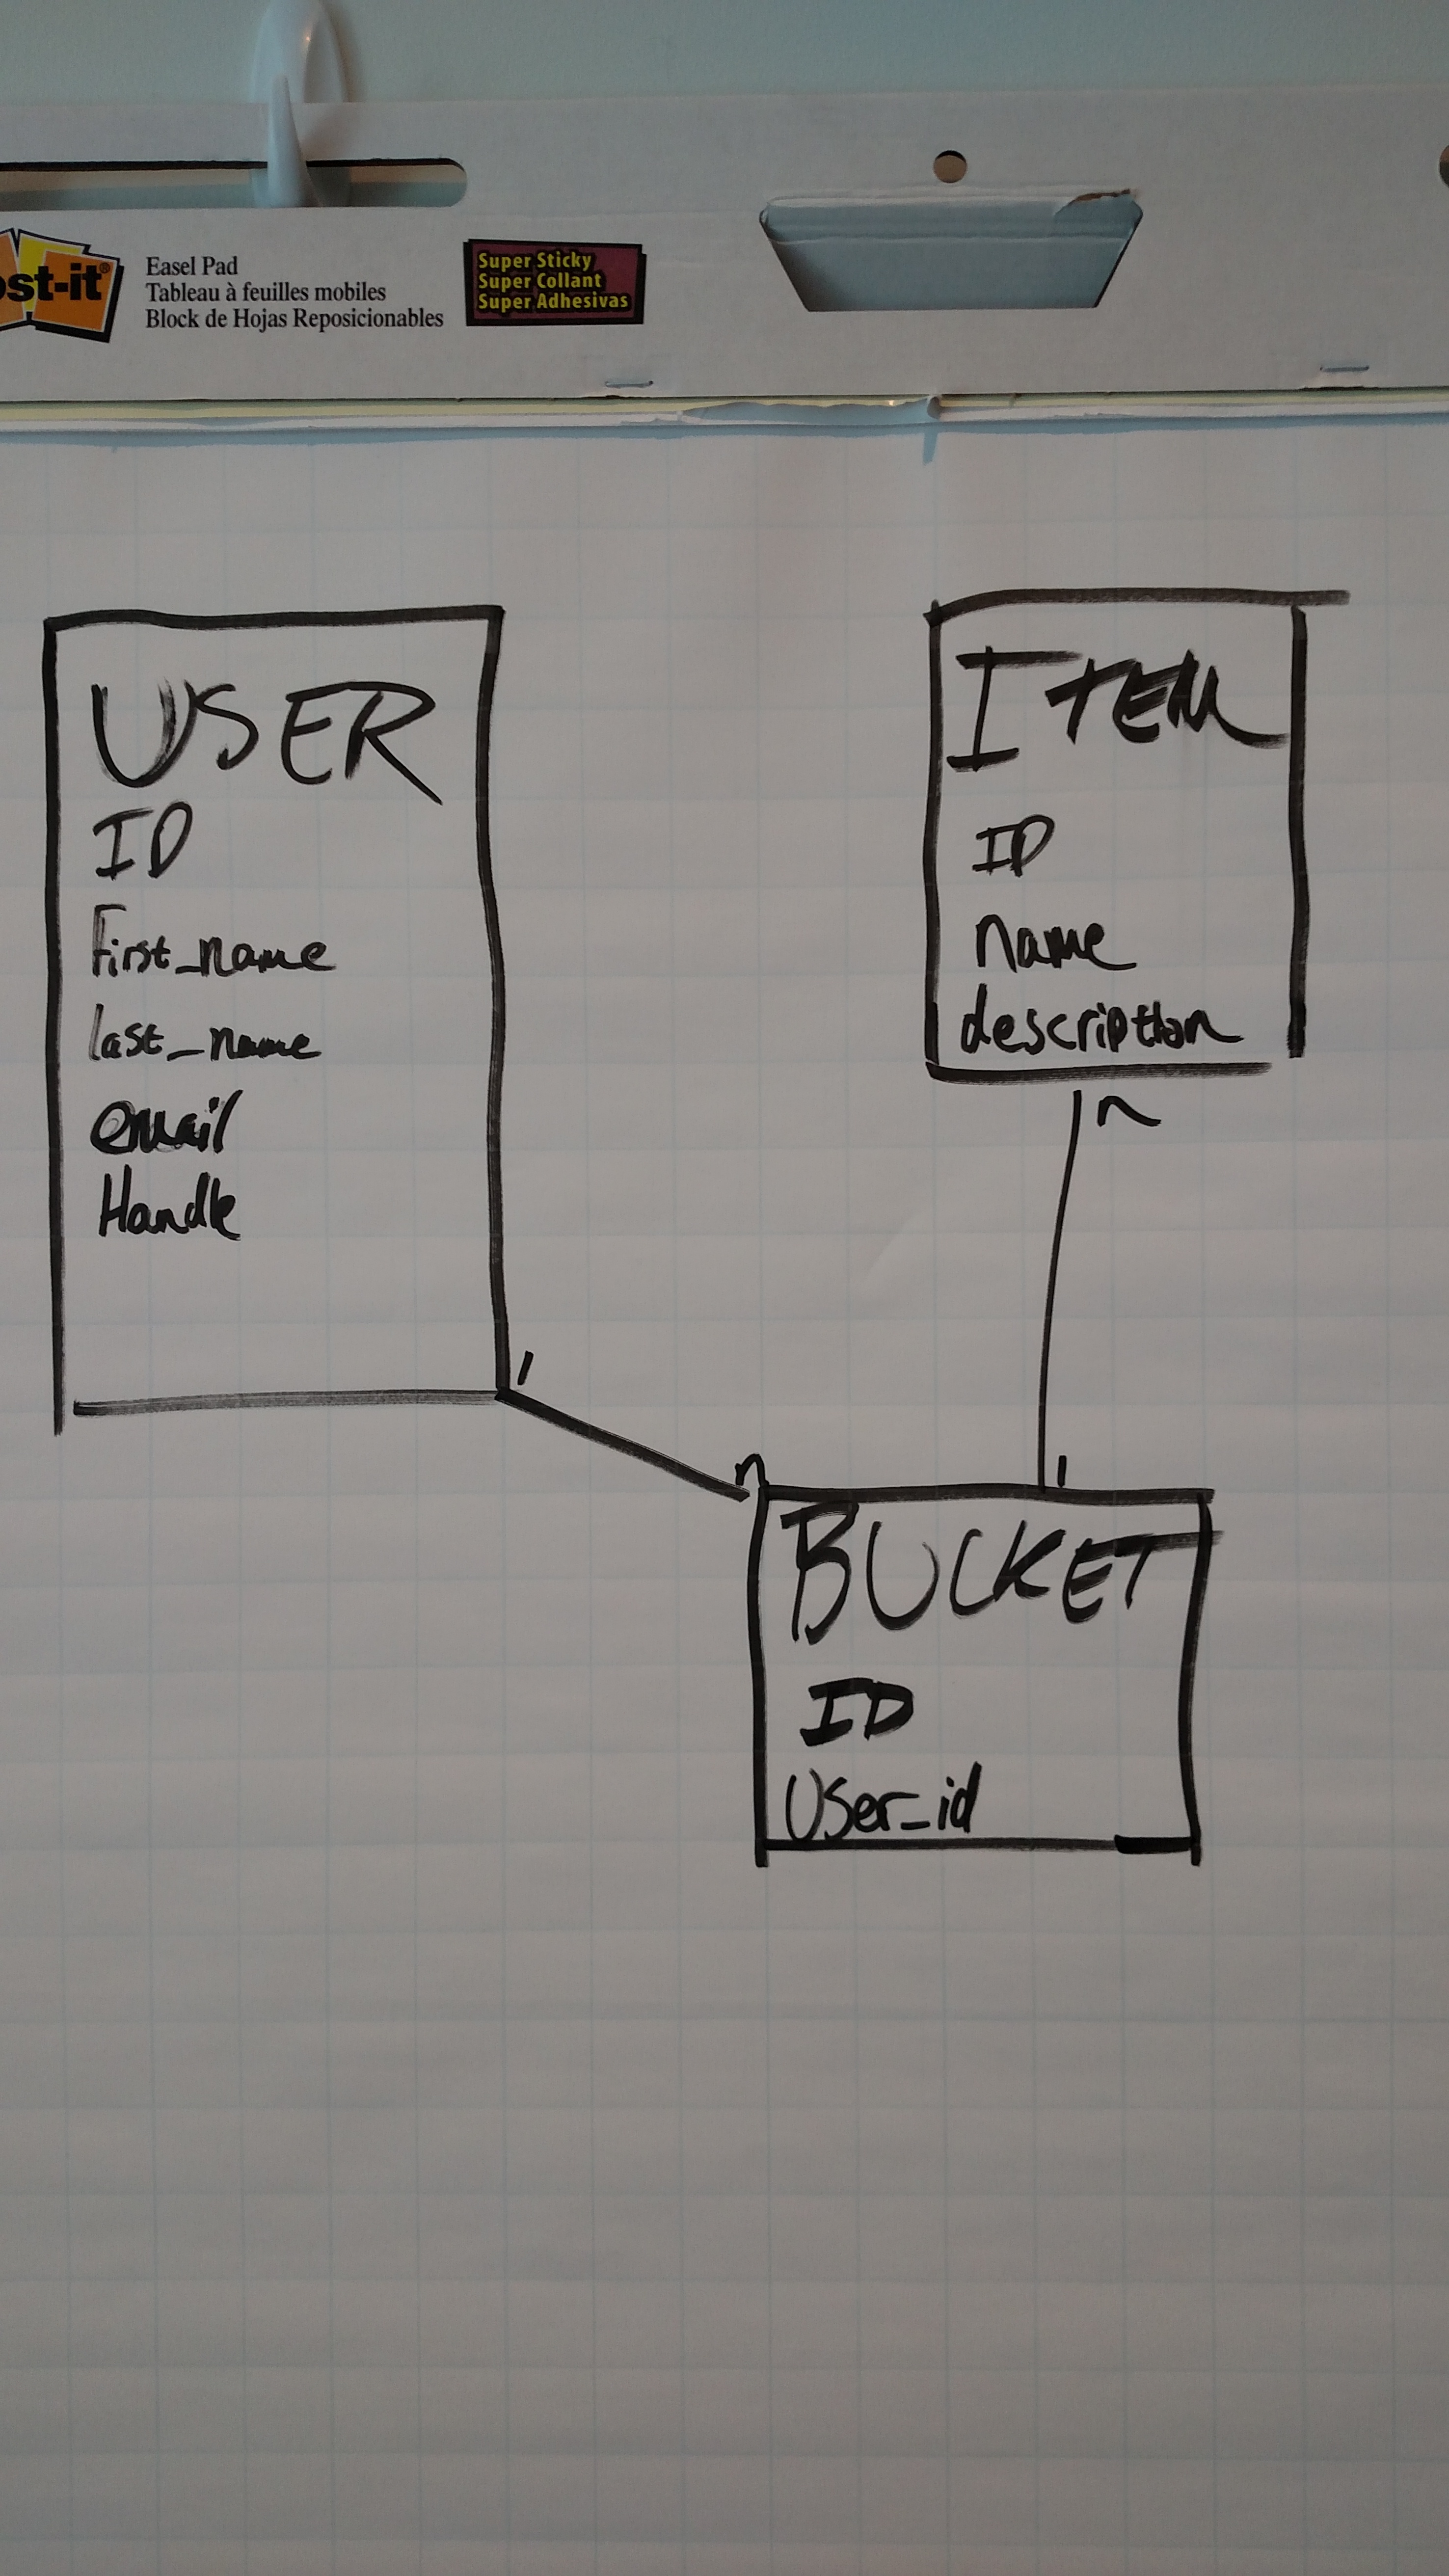 ost-it®
Easel Pad
Tableau à feuilles mobiles
Block de Hojas Reposicionables
Super Sticky
Super Collant
Super Adhesivas
USER
ID
first_name
last_name
email
Handle
1
ITEM
ID
name
description
n
n
1
BUCKET
ID
User_id